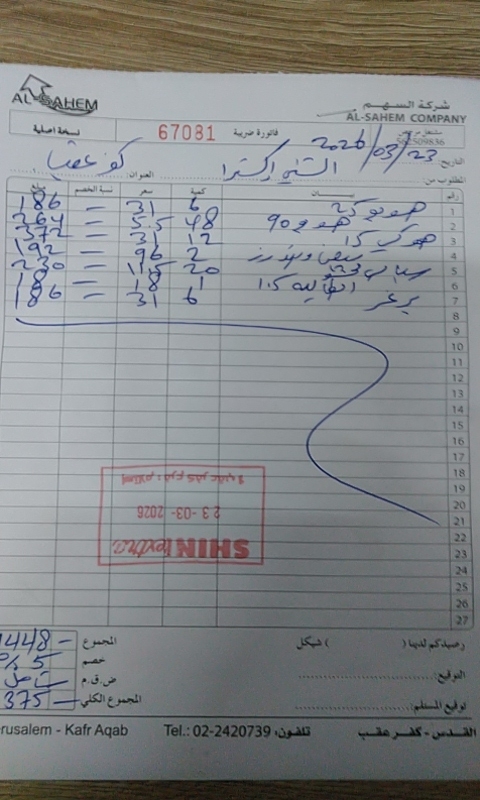 AL-SAHEM
شركة السهم
AL-SAHEM COMPANY
نسخة اصلية
67081
فاتورة ضريبة
مشتغل مرخص
562509836
التاريخ: 2026/03/23
المطلوب من الشني اكسترا العنوان: كفر عقب
رقم بيـــــان كمية سعر نسبة الخصم
1 6 31 186
2 90 48 5.5 264
3 15 12 31 372
4 2 96 192
5 20 11.5 230
6 1.5 1 18 18
7 برغر 6 31 186
8
9
10
11
12
13
14
15
16
17
18
19
20
21
22
23
24
25
26
27
SHINI extra
23-03-2026
استلام : فرع كفر عقب
رصيدكم لدينا ( ) شيكل
المجموع 1448
خصم 5%
التوقيع:
ض.ق.م
توقيع المستلم:
المجموع الكلي 1375
القدس - كفر عقب تلفون: Tel.: 02-2420739 erusalem - Kafr Aqab